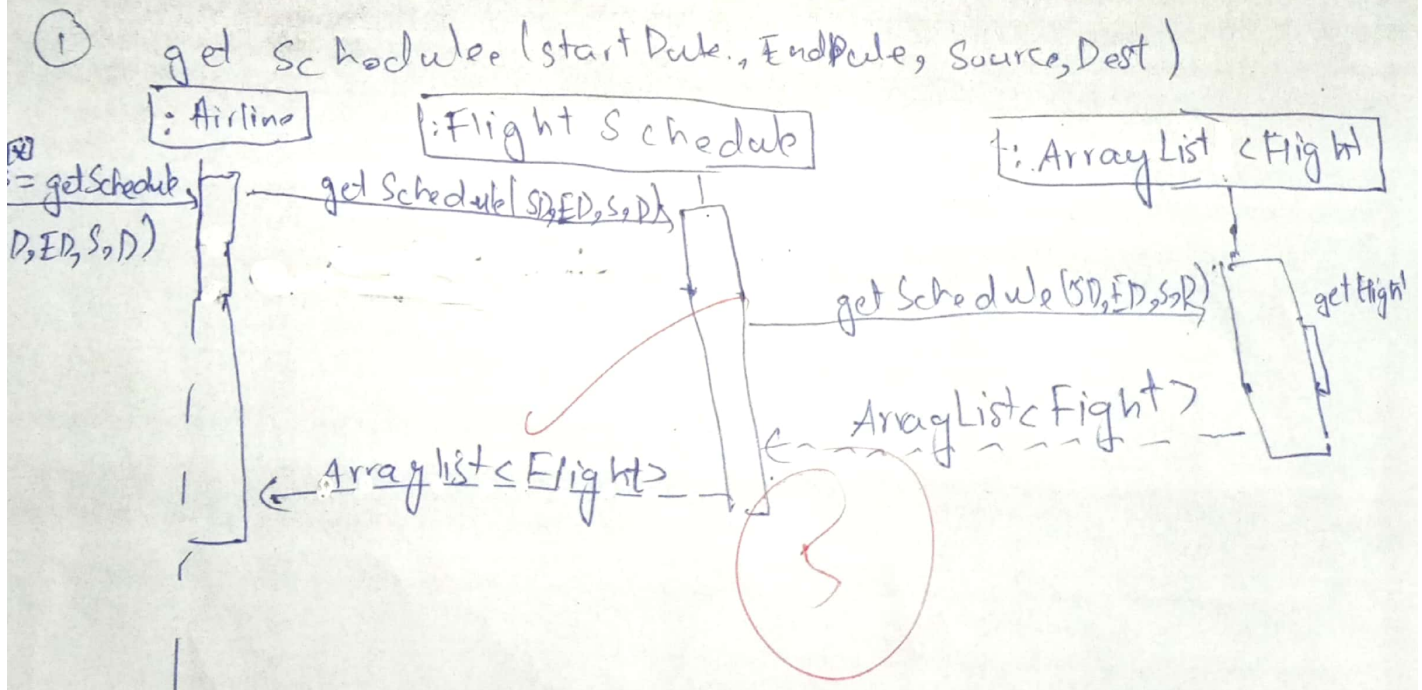 ①
get Schedulee (start Date., EndDate, Source, Dest)
: Airline
: Flight Schedule
: ArrayList <Flight
:= getSchedule
D, ED, S, D)
get Schedule( SD, ED, S, D)
get Schedule (SD, ED, S, R)
getFligh
ArrayList< Fight>
Arraylist < Flight>
3